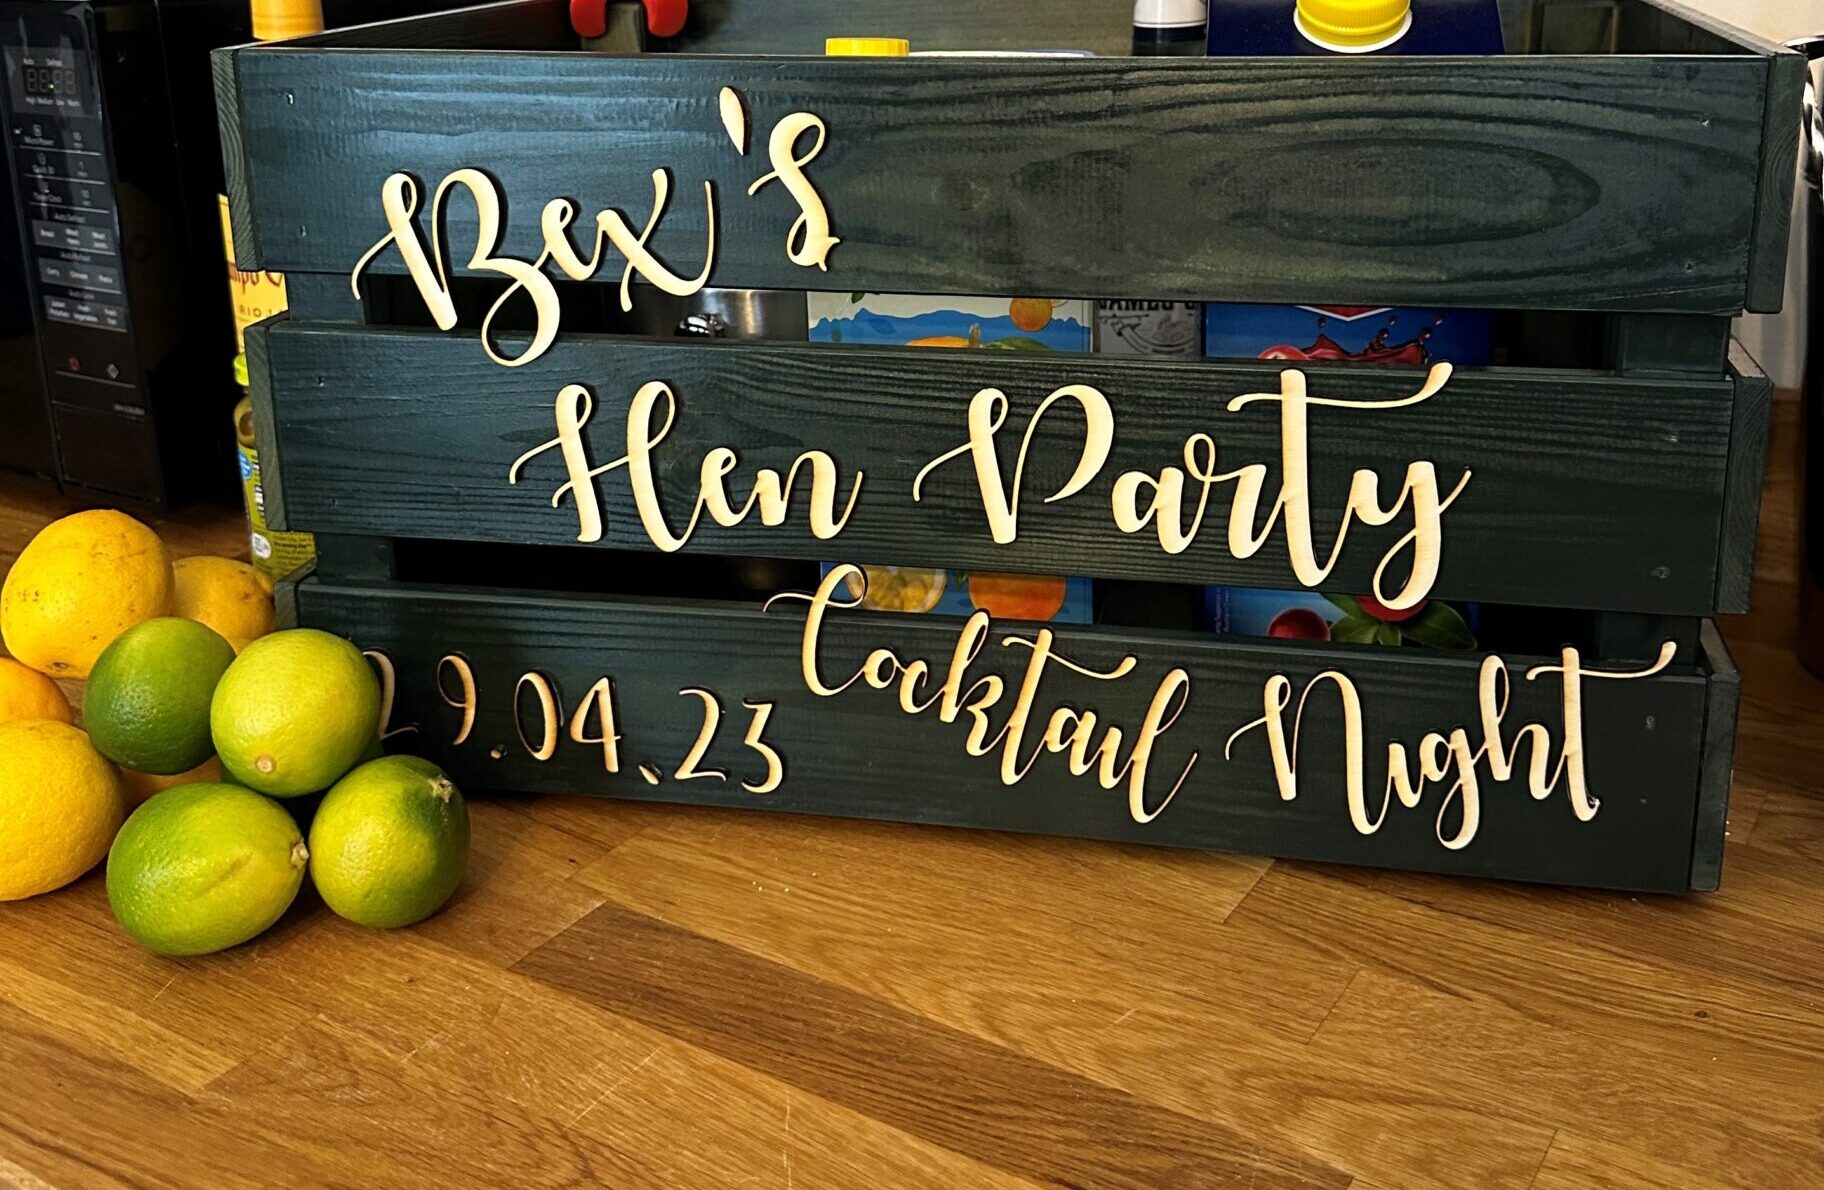 Bex's
Hen Party
Cocktail Night
29.04.23
JAMES'S